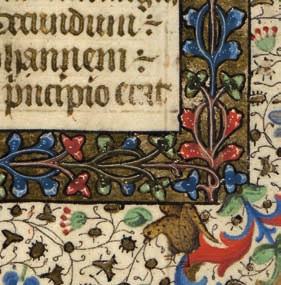 secundum
ohannem
principio erat